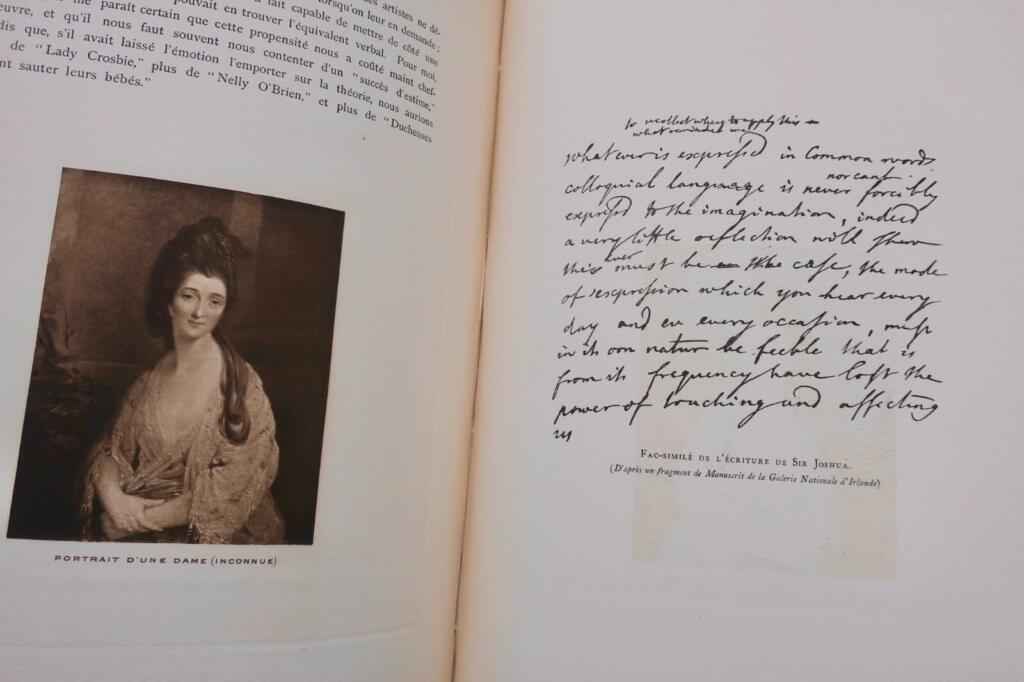 lorsqu'on leur en demande;
les artistes ne dé-
fait capable de mettre de côté une
pouvait en trouver l'équivalent verbal. Pour moi,
me paraît certain que cette propensité nous a coûté maint chef-
euvre, et qu'il nous faut souvent nous contenter d'un "succès d'estime,"
dis que, s'il avait laissé l'émotion l'emporter sur la théorie, nous aurions
de "Lady Crosbie," plus de "Nelly O'Brien," et plus de "Duchesses
nt sauter leurs bébés."
PORTRAIT D'UNE DAME (INCONNUE)
to recollect when to apply this
what reminded me
whatever is expressed in Common words
nor cant
colloquial language is never forcibly
expressed to the imagination, indeed
a very little reflection will shew
ever
this must be the case, the mode
of expression which you hear every
day and on every occasion, must
in its own natur be feeble that is
from its frequency have lost the
power of touching and affecting
us
FAC-SIMILÉ DE L'ÉCRITURE DE SIR JOSHUA.
(D'après un fragment de Manuscrit de la Galerie Nationale d'Irlande)